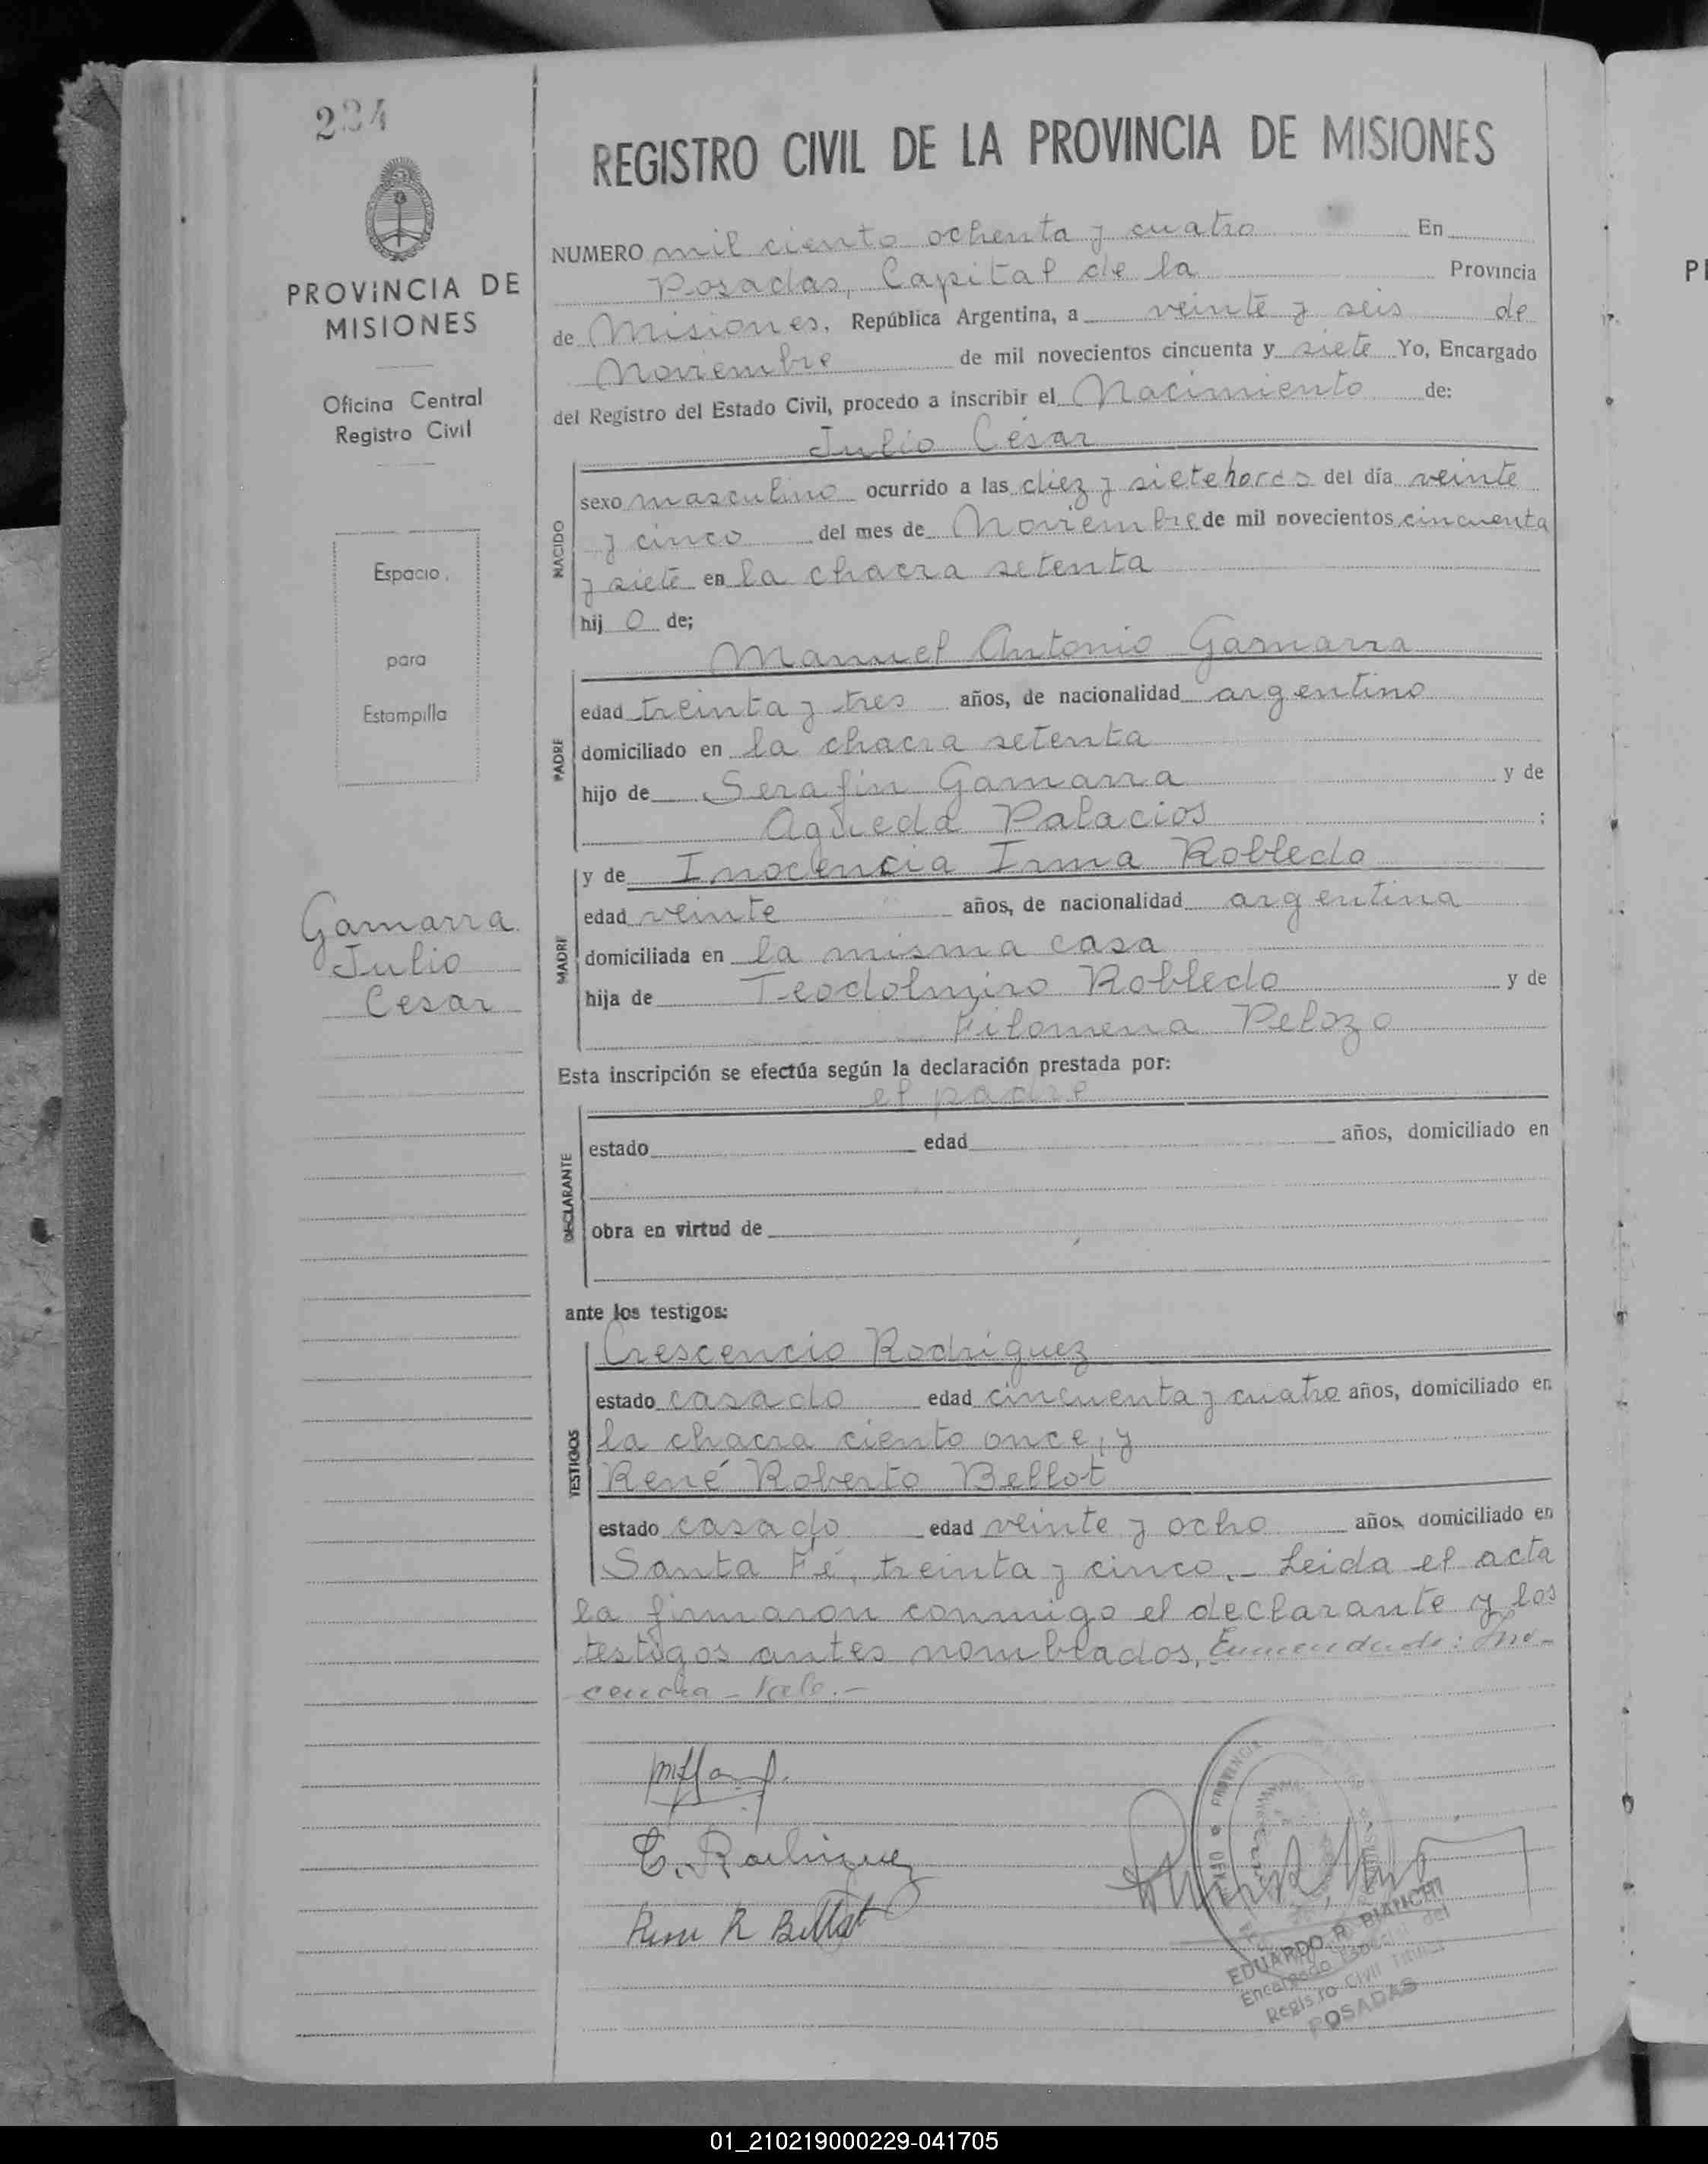 234
PROVINCIA DE
MISIONES
Oficina Central
Registro Civil
Espacio
para
Estampilla
Gamarra
Julio
Cesar
REGISTRO CIVIL DE LA PROVINCIA DE MISIONES
NUMERO mil ciento ochenta y cuatro En
Posadas, Capital de la Provincia
de Misiones, República Argentina, a veinte y seis de
Noviembre de mil novecientos cincuenta y siete Yo, Encargado
del Registro del Estado Civil, procedo a inscribir el Nacimiento de:
Julio César
NACIDO
sexo masculino ocurrido a las diez y siete horas del día veinte
y cinco del mes de Noviembre de mil novecientos cincuenta
y siete en la chacra setenta
hij o de;
Manuel Antonio Gamarra
PADRE
edad treinta y tres años, de nacionalidad argentino
domiciliado en la chacra setenta
hijo de Serafin Gamarra y de
Agueda Palacios ;
y de Inocencia Irma Robledo
MADRE
edad veinte años, de nacionalidad argentina
domiciliada en la misma casa
hija de Teodolmiro Robledo y de
Filomena Pelozo
Esta inscripción se efectúa según la declaración prestada por:
el padre
DECLARANTE
estado edad años, domiciliado en
obra en virtud de
ante los testigos:
Crescencio Rodriguez
TESTIGOS
estado casado edad cincuenta y cuatro años, domiciliado en
la chacra ciento once, y
René Roberto Bellot
estado casado edad veinte y ocho años domiciliado en
Santa Fé, treinta y cinco.- Leida el acta
la firmaron conmigo el declarante y los
testigos antes nombrados. Enmendado: Ino-
cencia - Vale.-
C. Rodriguez
Rene R Bellot
PROVINCIA
EDUARDO R. BIANCHI
Encargado del
Registro Civil Titular
POSADAS
01_210219000229-041705